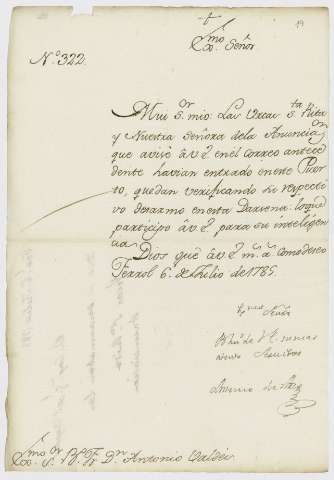 †
Exmo. Señor
19
No. 322.
Mui Sor. mio: Las Urcas Sta. Rita
y Nuestra Señora dela Anunciaon.
que avisè â V.E. enel Correo antece
dente havian entrado eneste Puer
to, quedan verificando su respecti
vo desarmo enesta Darsena: loque
participo â V.E. para su inteligen
cia.
Dios gue. â V.E. ms. as. como deseo
Ferrol 6. de Julio de 1785.
Exmo. Señor
B. L. M. de V.E. su mas
atento Servidor
Exmo. Sor. Bo. Fr. Dn. Antonio Valdès.